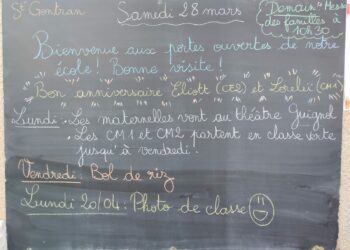 St Gontran
Samedi 28 mars
Demain : Messe
des familles à
10h30
Bienvenue aux portes ouvertes de notre
école ! Bonne visite !
Bon anniversaire Eliott (CE2) et Lorelei (CM1)
Lundi : . Les maternelles vont au théâtre Guignol
. Les CM1 et CM2 partent en classe verte
jusqu'à vendredi !
Vendredi : Bol de riz
Lundi 20/04 : Photo de classe